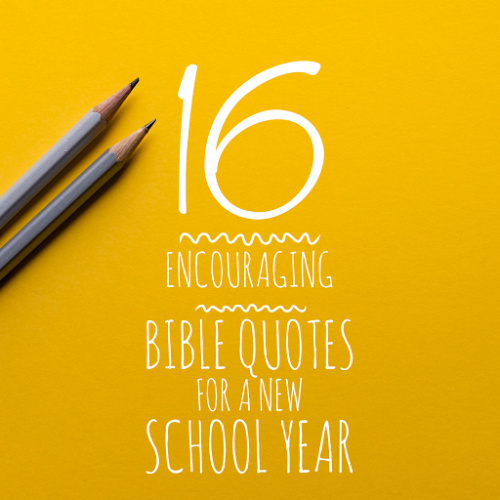 16
ENCOURAGING
BIBLE QUOTES
FOR A NEW
SCHOOL YEAR